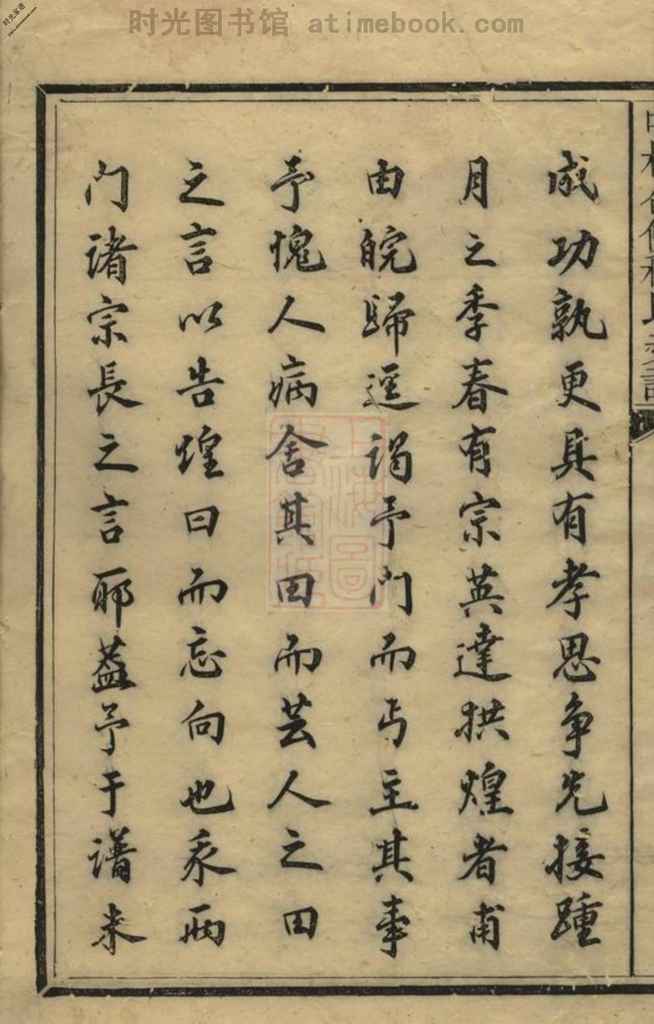 时光图书馆 atimebook.com
成功孰更具有孝思争先接踵
月之季春有宗英達拱煌者甫
由皖歸逕謁予門而丐主其事
予愧人病舍其田而芸人之田
之言以告煌曰而忘向也承兩
門諸宗長之言耶蓋予于譜未